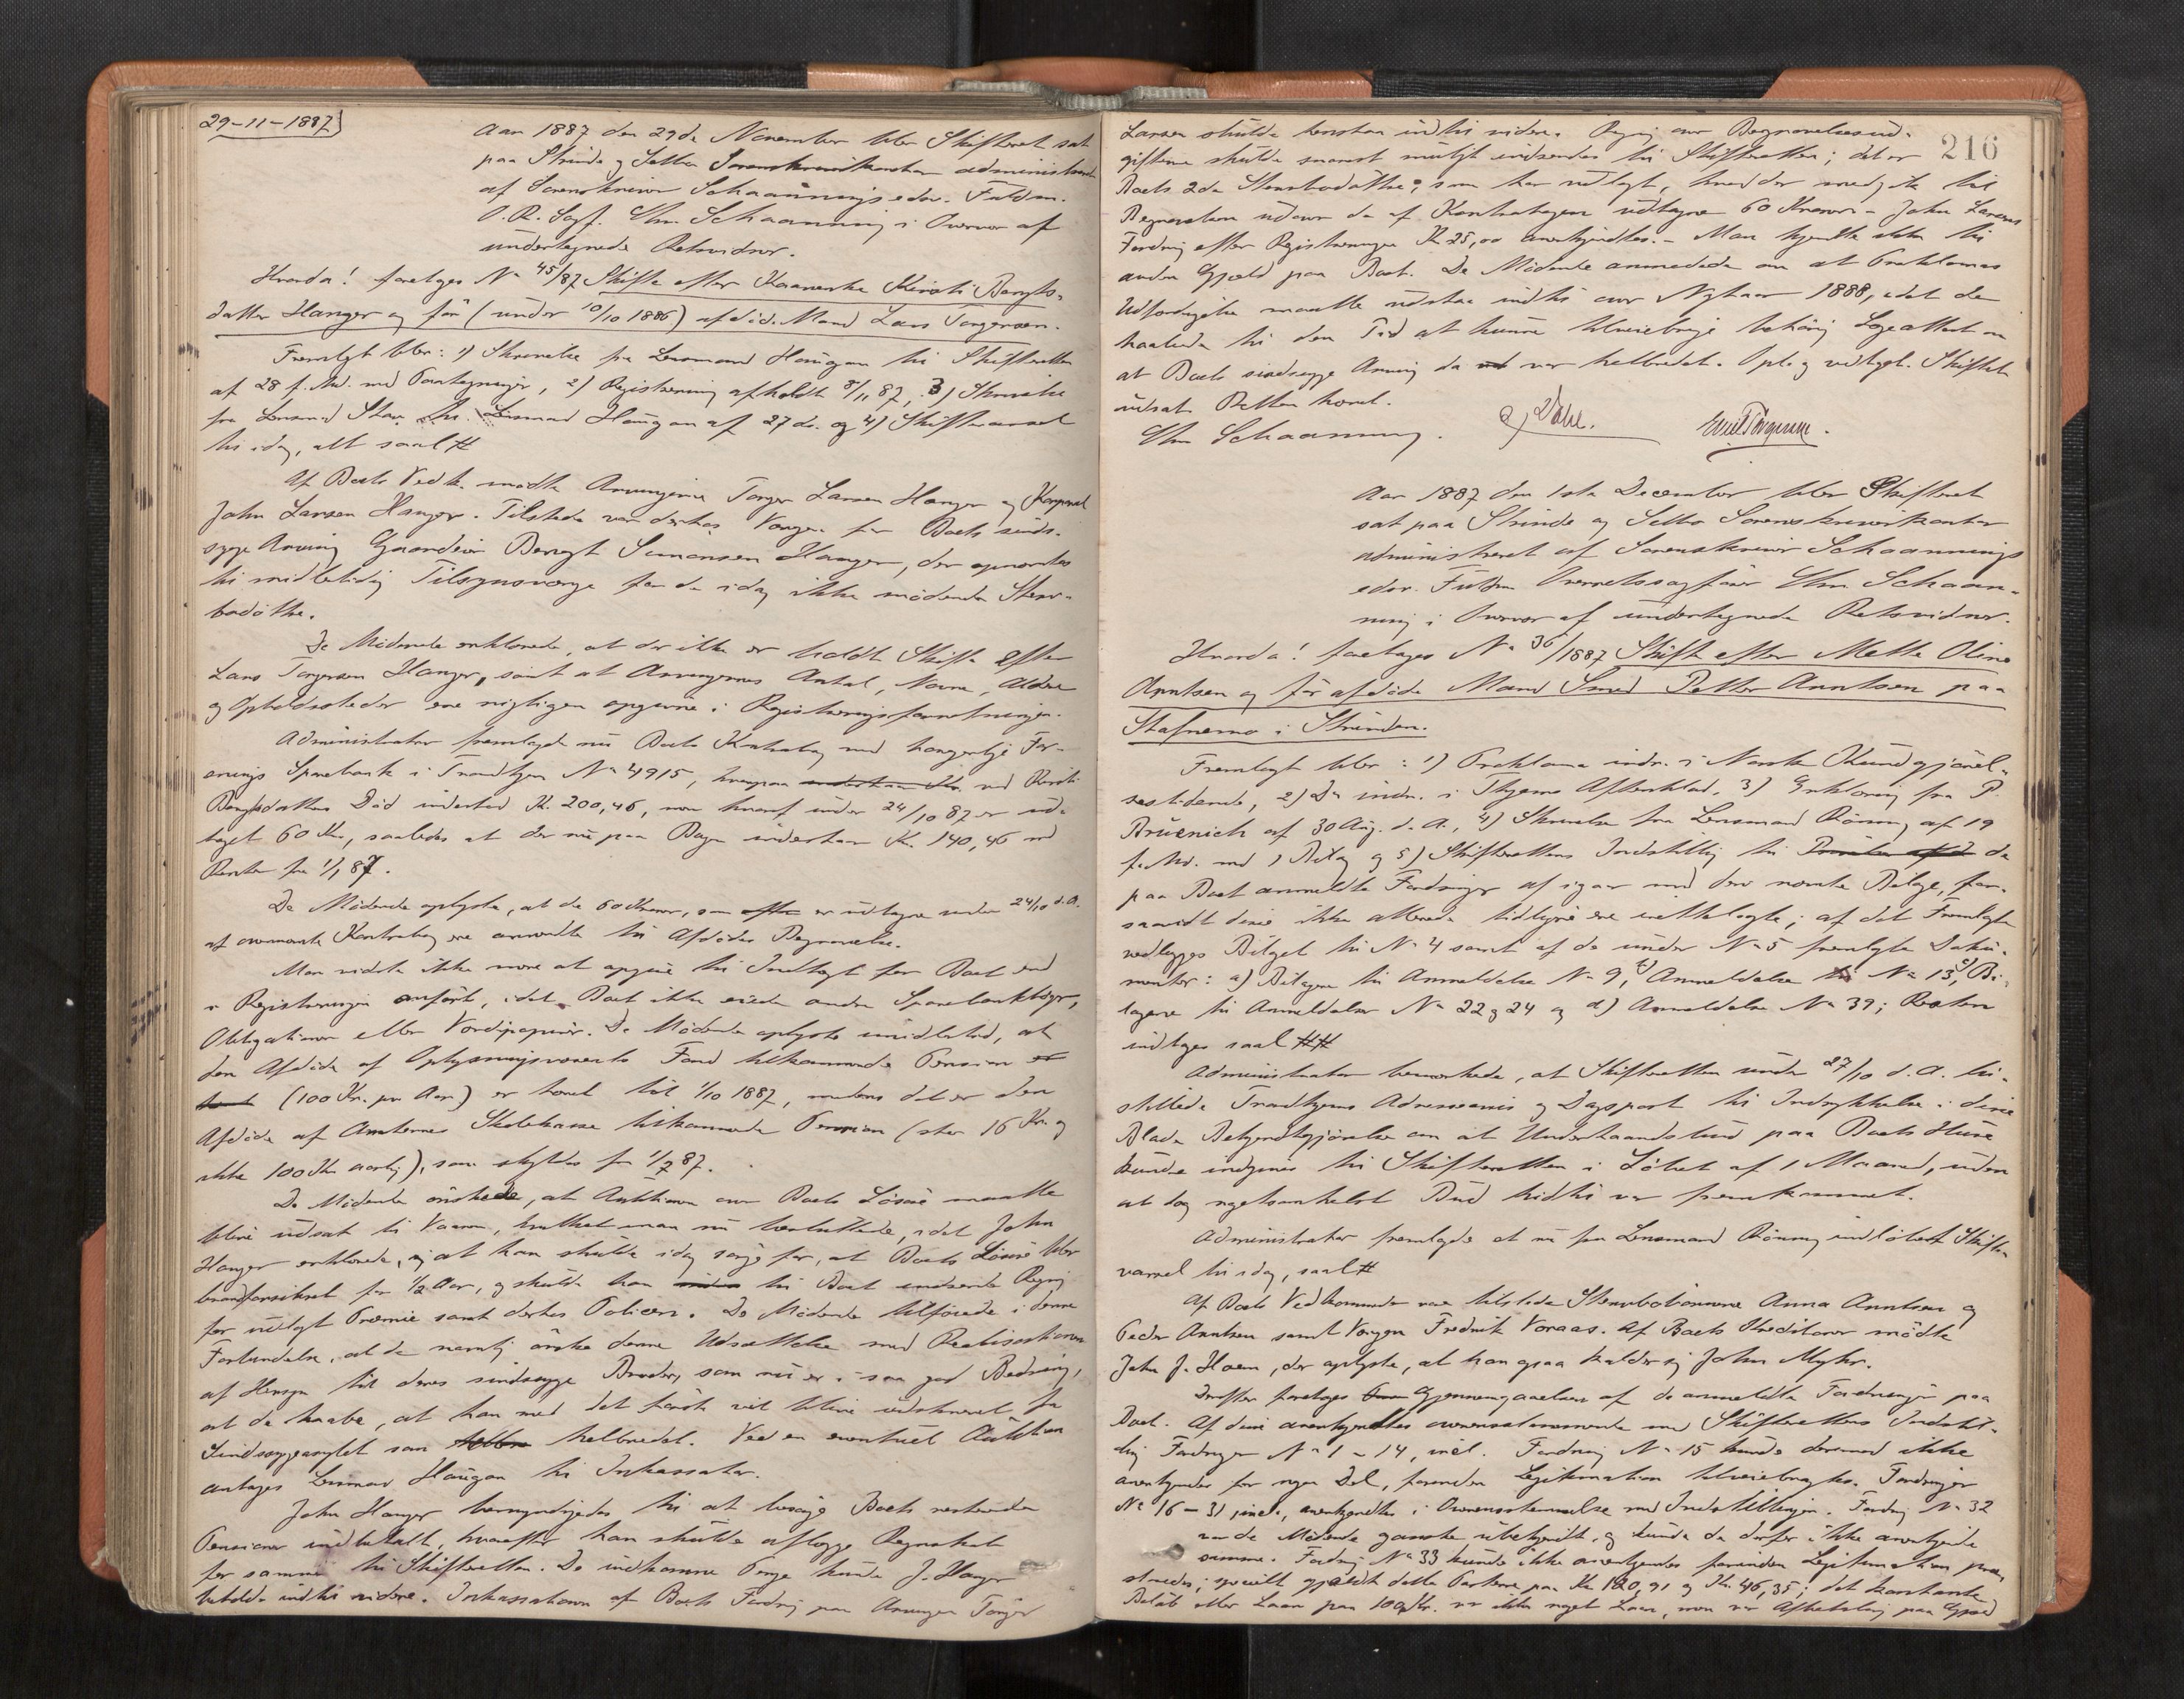 29-11-1887
Aar 1887 den 29de November blev Skifteret sat
paa Strinde og Selbu Sorenskriverkontor administreret
af Sorenskriver Schaannings edsv. Fuldm.
O. R. Sagf. Wm. Schaanning i Overvær af
undertegnede Retsvidner.
Hvorda! foretoges No 45/87 Skifte efter Kaarenke Kirsti Bengts-
datter Hanger og før (under 10/10 1886) afdöde Mand Lars Torgersen.
Fremlagt blev: 1) Skrivelse fra Lensmand Haugan til Skifteretten
af 28 f. Md. med Paategninger, 2) Registrering afholdt 8/11 87, 3) Skrivelse
fra Lensmd Stav til Lensmand Haugan af 27 ds. og 4) Skiftevarsel
til idag, alt saal #
Af Boets Vedk. mödte Arvingerne Torger Larsen Hanger og Korporal
John Larsen Hanger. Tilstede var derhos Værgen for Boets sinds-
syge Arving Gaardeier Bengt Simonsen Hanger, der opnævntes
til midlertidig Tilsynsværge for de idag ikke mödende Sterv-
bodötre.
De Mödende erklærede, at der ikke er holdt Skifte efter
Lars Torgersen Hanger, samt at Arvingernes Antal, Navne, Aldre
og Opholdssteder ere rigtigen opgivne i Registreringsforretningen.
Administrator fremlagde nu Boets Kontrabog med borgerlige For-
enings Sparebank i Trondhjem No 4915, hvorpaa ved Kirsti
Bengtsdatters Död indestod Kr. 200,46, men hvoraf under 24/10 87 er ud-
taget 60 Kr., saaledes at der nu paa Bogen indestaar Kr. 140,46 med
Renter fra 1/1 87.
De Mödende oplyste, at de 60 Kroner, som er udtagne under 24/10 d. A.
af ovennævnte Kontrabog ere anvendte til Afdödes Begravelse.
Man vidste ikke mere at opgive til Indtægt for Boet end
i Registreringen anfört, idet Boet ikke eiede andre Sparebankböger,
Obligationer eller Værdipapirer. De Mödende oplyste imidlertid, at
den Afdöde af Oplysningsvæsenets Fond tilkommende Pension
(100 Kr. pr Aar) er hævet til 1/10 1887, medens det er den
Afdöde af Amternes Skolekasse tilkommende Pension (stor 16 Kr. og
ikke 100 Kr aarlig), som skyldes fra 1/7 87.
De Mödende önskede, at Auktionen over Boets Lösöre maatte
blive udsat til Vaaren, hvilket man nu besluttede, idet John
Hanger erklærede, at han skulde idag sörge for, at Boets Lösöre blev
brandforsikret for 1/2 Aar, og skulde han til Boet indsende Regning
for udlagt Præmie samt derhos Policen. De Mödende tilföiede i denne
Forbindelse, at de nemlig önske denne Udsættelse med Realisationen
af Hensyn til deres sindssyge Broder, som nu er i saa god Bedring,
at de haabe, at han med det förste vil blive udskrevet fra
Sindssygeasylet som helbredet. Ved en eventuel Auktion
antages Lensmand Haugan til Inkassator.
John Hanger bemyndigedes til at besörge Boets resterende
Pensioner indbetalt, hvorefter han skulde aflægge Regnskab
for samme til Skifteretten. De indkomne Penge kunde J. Hanger
beholde indtil videre. Inkassationen af Boets Fordring paa Arvingen Torger
216
Larsen skulde henstaa indtil videre. Regning over Begravelsesud-
gifterne skulde snarest muligt indsendes til Skifteretten; det er
Boets 2de Stervbodötre, som har udlagt, hvad der medgik til
Begravelsen udover de af Kontrabogen udtagne 60 Kroner. - John Larsens
Fordring efter Registreringen Kr 25,00 anerkjendtes. - Man kjendte ikke til
anden Gjæld paa Boet. De Mödende anmodede om at Proklamas
Udfærdigelse maatte udstaa indtil over Nytaar 1888, idet de
haabede til den Tid at kunne tilveiebringe behörig Lægeattest om
at Boets sindssyge Arving da var helbredet. Opl. og vedtaget. Skiftet
udsat. Retten hævet.
Wm Schaanning. Dahl. Emil Torgersen.
Aar 1887 den 1ste December blev Skifteret
sat paa Strinde og Selbu Sorenskriverkontor
administreret af Sorenskriver Schaannings
edsv. Fuldm Overretssagförer Wm Schaan-
ning i Overvær af undertegnede Retsvidner.
Hvorda! foretoges No 36/1887 Skifte efter Mette Oline
Arntsen og för afdöde Mand Smed Petter Arntsen paa
Stafnemo i Strinden.
Fremlagt blev: 1) Proklama indr. i Norske Kundgjörel-
sestidende, 2) Do indr. i Thjems Aftenblad, 3) Erklæring fra P.
Bruenich af 30 Aug. d. A., 4) Skrivelse fra Lensmand Rönning af 19
f. Md. med 1 Bilag og 5) Skifterettens Indstilling til de
paa Boet anmeldte Fordringer af igaar med deri nævnte Bilage, for-
saavidt disse ikke allerede tidligere ere irettelagte; af det Fremlagte
vedlægges Bilaget til No 4 samt af de under No 5 fremlagte Doku-
menter: a) Bilagene til Anmeldelse No 9, b) Anmeldelse No 13, c) Bi-
lagene til Anmeldelser No 22 og 24 og d) Anmeldelse No 39; Resten
indtages saal ##
Administrator bemærkede, at Skifteretten under 27/10 d. A. til-
stillede Trondhjems Adresseavis og Dagspost til Indrykkelse i disse
Blade Bekjendtgjörelse om at Underhaandsbud paa Boets Huse
kunde indgives til Skifteretten i Löbet af 1 Maaned, uden
at dog nogetsomhelst Bud hidtil var fremkommet.
Administrator fremlagde et nu fra Lensmand Rönning indlöbet Skifte-
varsel til idag, saal #
Af Boets Vedkommende var tilstede Stervboborinerne Anna Arntsen og
Peder Arntsen samt Værgen Fredrik Voraas. Af Boets Kreditorer mödte
John J. Hoem, der oplyste, at han ogsaa kalder sig John Myhr.
Derefter foretoges Gjennemgaaelsen af de anmeldte Fordringer paa
Boet. Af disse anerkjendtes overensstemmende med Skifterettens Indstil-
ling Fordringer No 1 - 14, incl. Fordring No 15 kunde derimod ikke
anerkjendes for nogen Del, forinden Legitimation tilveiebragtes. Fordringer
No 16 - 31, incl., anerkjendtes i Overensstemmelse med Indstillingen. Fordring No 32
var de Mödende ganske ubekjendt, og kunde de derfor ikke anerkjende
samme. Fordring No 33 kunde ikke anerkjendes forinden Legitimation præ-
steredes; specielt gjældt dette Posterne paa Kr 120,91 og Kr. 46,35; det kontante
Belöb eller Laan paa 100 Kr. var ikke noget Laan, men var Afbetaling paa Gjæld